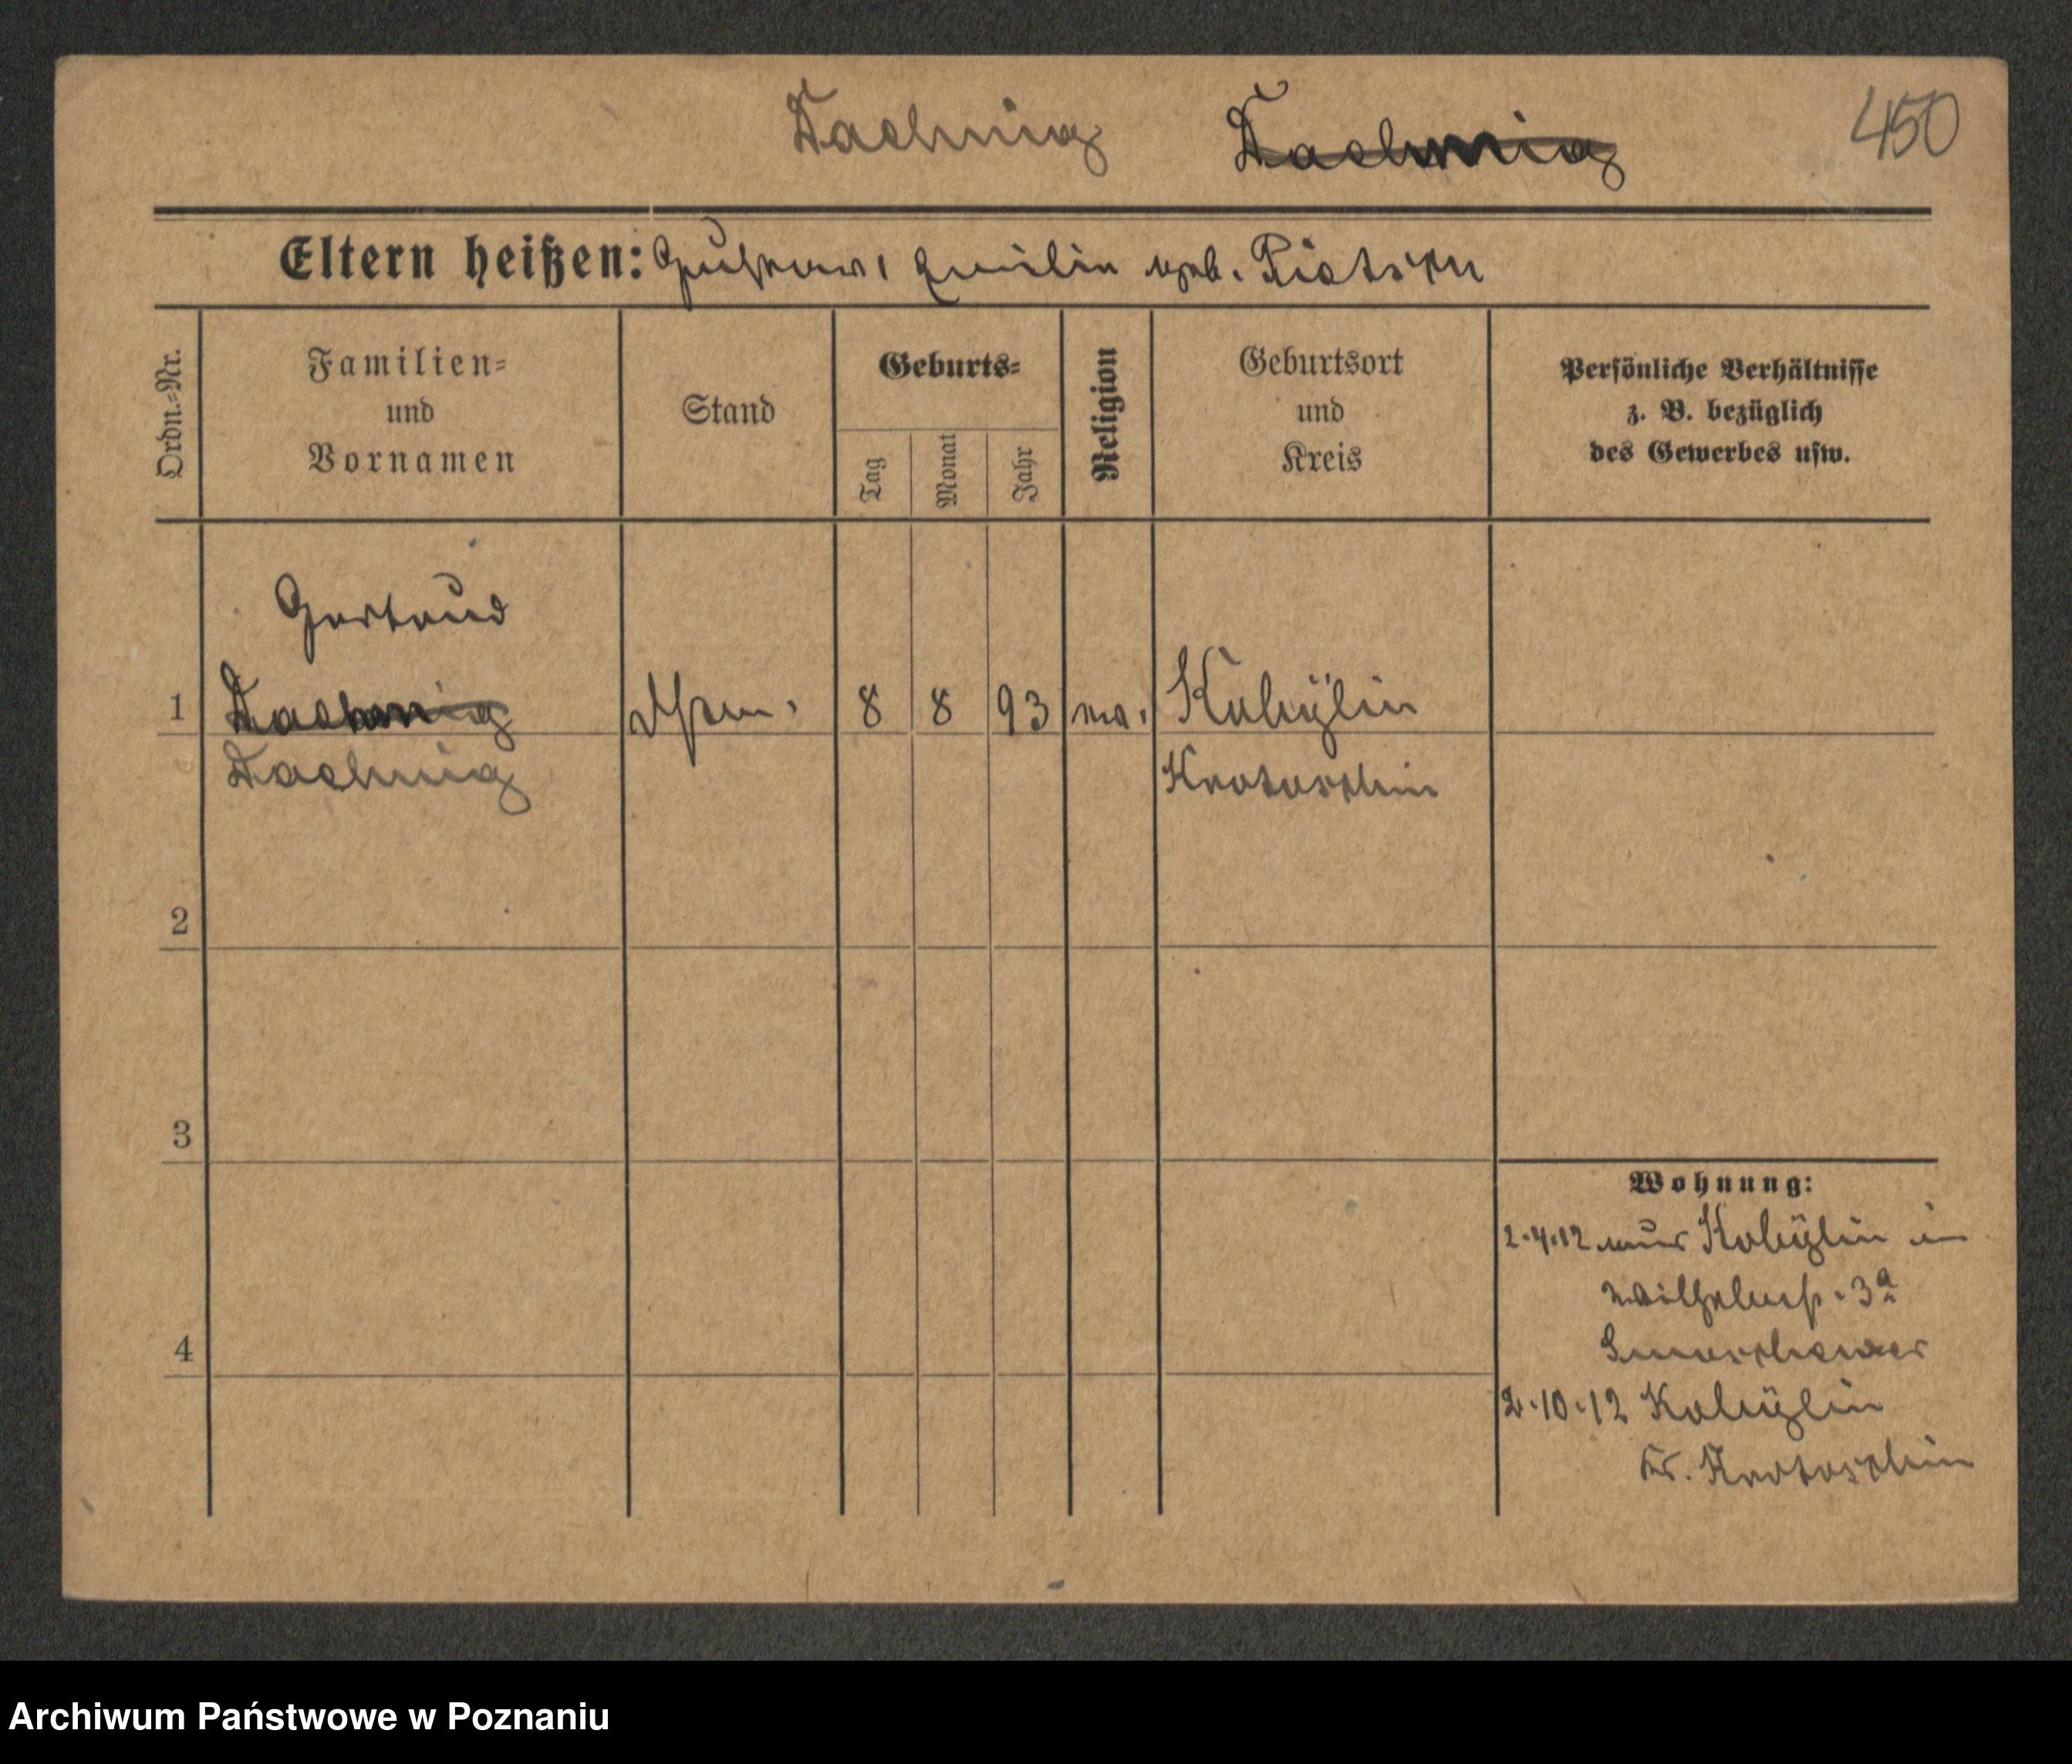 Dachnig Dachnig 450
Eltern heißen: Gustav, Emilie geb.
Ordn.-Nr. Familien- und Vornamen Stand Geburts- Tag Monat Jahr Religion Geburtsort und Kreis Persönliche Verhältnisse z. B. bezüglich des Gewerbes usw.
Gertrud
1 Dachnig 8 8 93 Kobylin
Dachnig Krotoschin
2
3
Wohnung:
2.4.12 aus Kobylin in
Wilhelmstr. 3a
4
2.10.12 Kobylin
Kr. Krotoschin
Archiwum Państwowe w Poznaniu